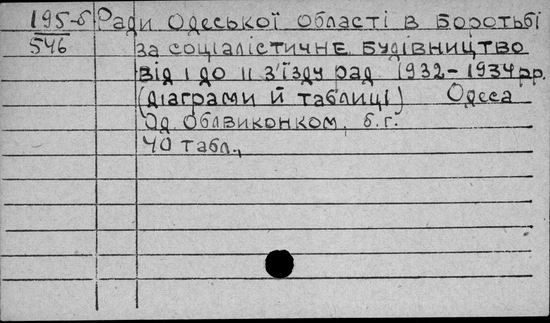 195-б Ради Одеської області в боротьбі
546 за соціалістичне будівництво
від I до II з'їзду рад 1932-1934 рр.
(діаграми й таблиці) Одеса
Од Облвиконком, б.г.
40 табл.,